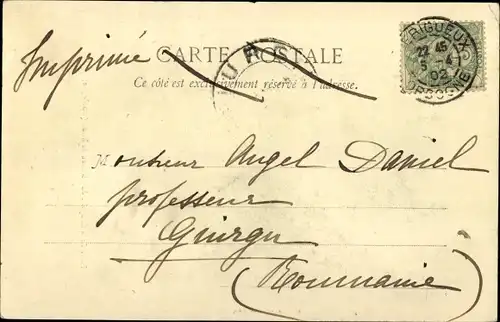 Imprimé
CARTE POSTALE
Ce côté est exclusivement réservé à l'adresse.
PÉRIGUEUX
22 45
5 - 4
02
DORDOGNE
Monsieur Angel Daniel
professeur
Giurgu
(Roumanie)